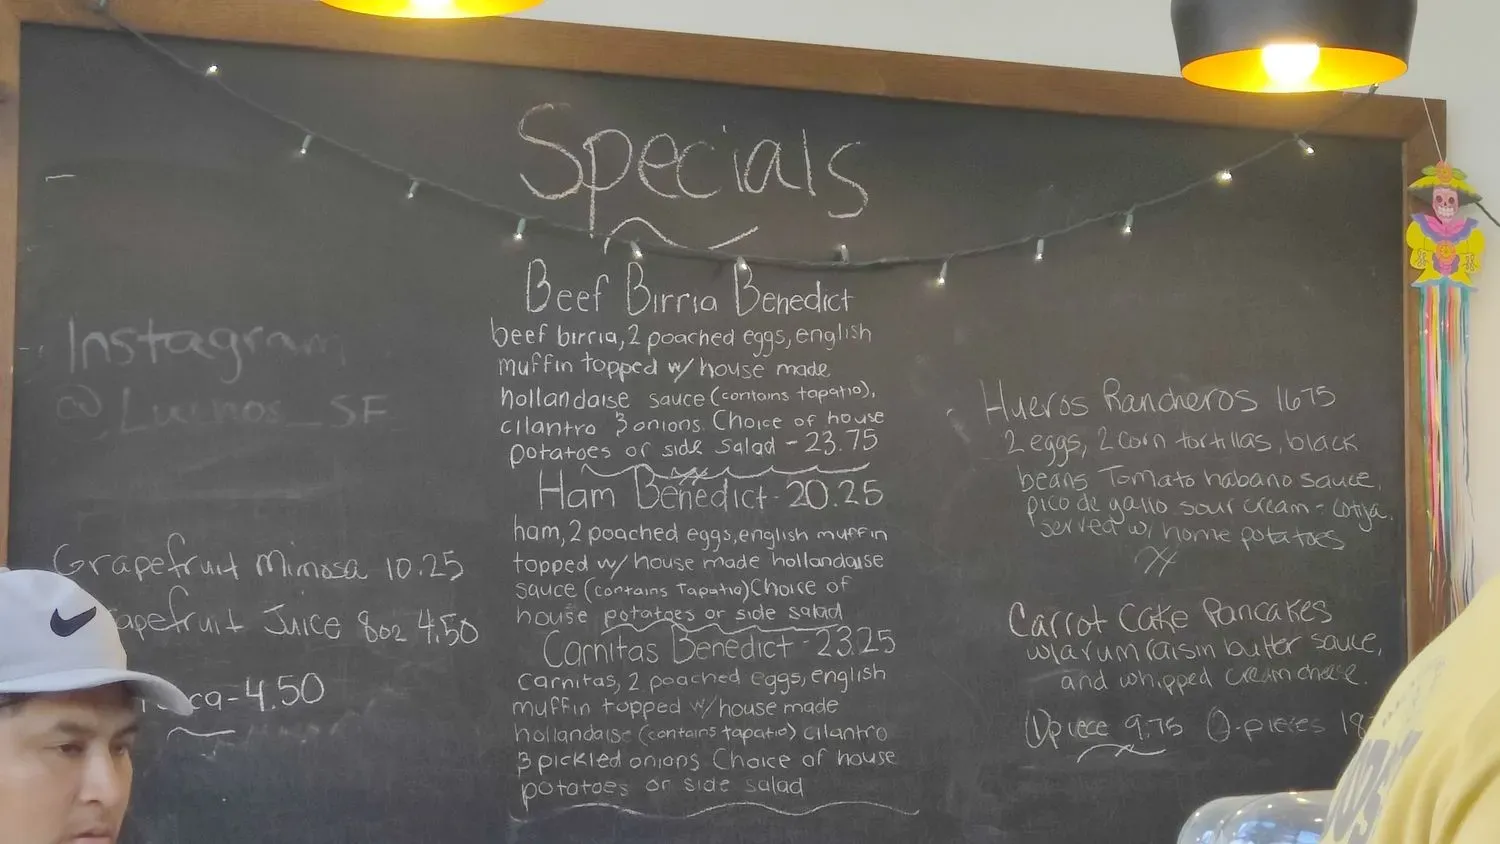 Specials
Instagram
@Luchos_SF
Grapefruit Mimosa 10.25
apefruit Juice 8oz 4.50
ca-4.50
Beef Birria Benedict
beef birria, 2 poached eggs, english
muffin topped w/ house made
hollandaise sauce (contains tapatio),
cilantro 3 onions. Choice of house
potatoes or side salad - 23.75
Ham Benedict - 20.25
ham, 2 poached eggs, english muffin
topped w/ house made hollandaise
sauce (contains Tapatio) Choice of
house potatoes or side salad
Carnitas Benedict - 23.25
carnitas, 2 poached eggs, english
muffin topped w/ house made
hollandaise (contains tapatio) cilantro
3 pickled onions Choice of house
potatoes or side salad
Hueros Rancheros 16.75
2 eggs, 2 corn tortillas, black
beans Tomato habano sauce,
pico de gallo sour cream - Cotija.
served w/ home potatoes
Carrot Cake Pancakes
w/a rum raisin butter sauce,
and whipped cream cheese.
(1) piece 9.75 (2)-pieces 18